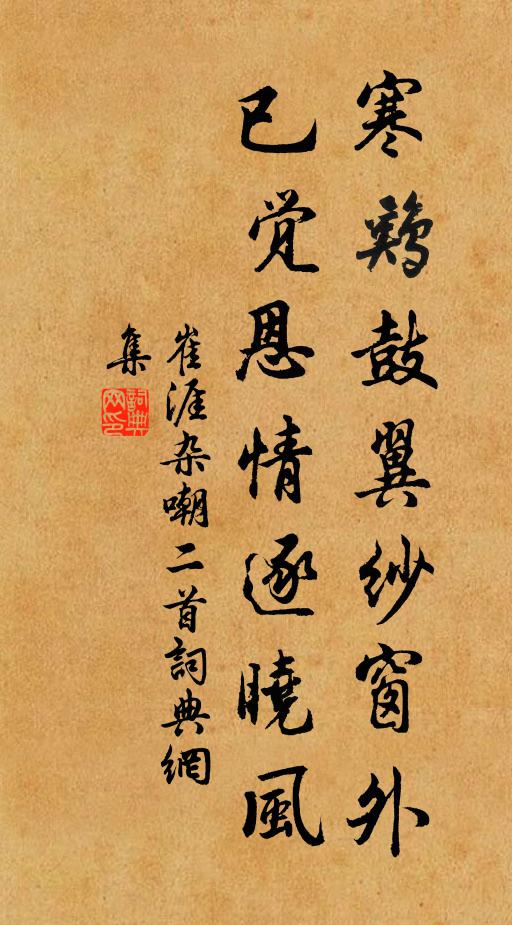 寒鷄鼓翼紗窗外
已觉恩情逐曉風
崔涯杂嘲二首詞典網
集
詞典网印